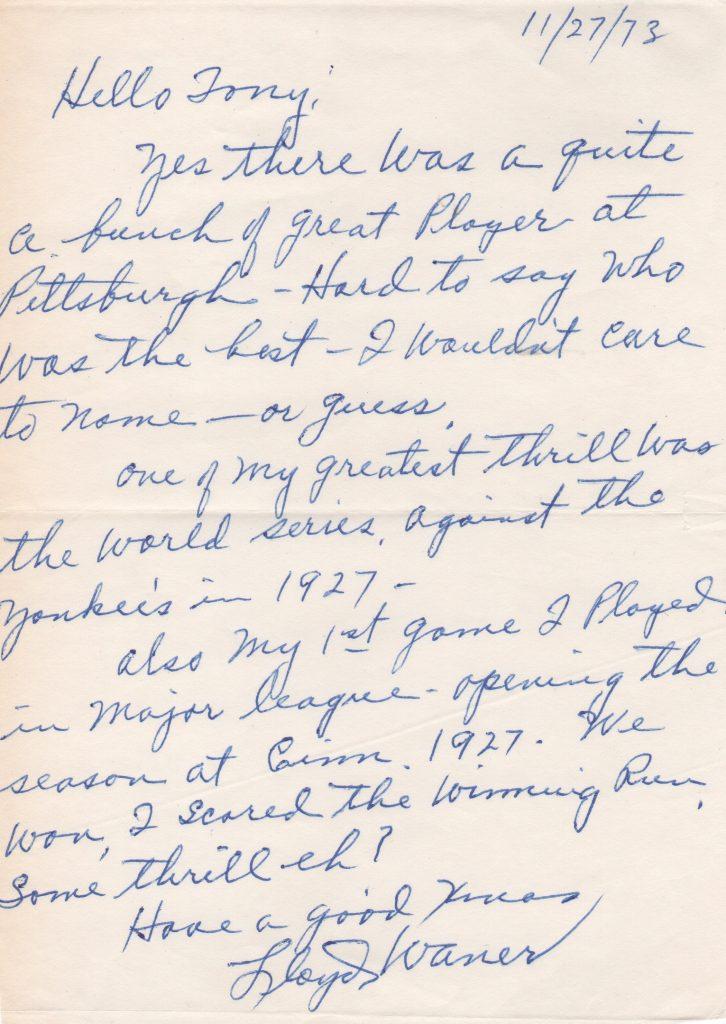 11/27/73
Hello Tony;
Yes there was a quite
a bunch of great Player at
Pittsburgh - Hard to say who
was the best - I wouldn't care
to name - or guess.
one of my greatest thrill was
the world series, against the
Yankee's in 1927 -
also my 1st game I Played
in Major league - opening the
season at Cinn. 1927. We
won, I scored the winning Run,
Some thrill eh?
Have a good Xmas
Lloyd Waner